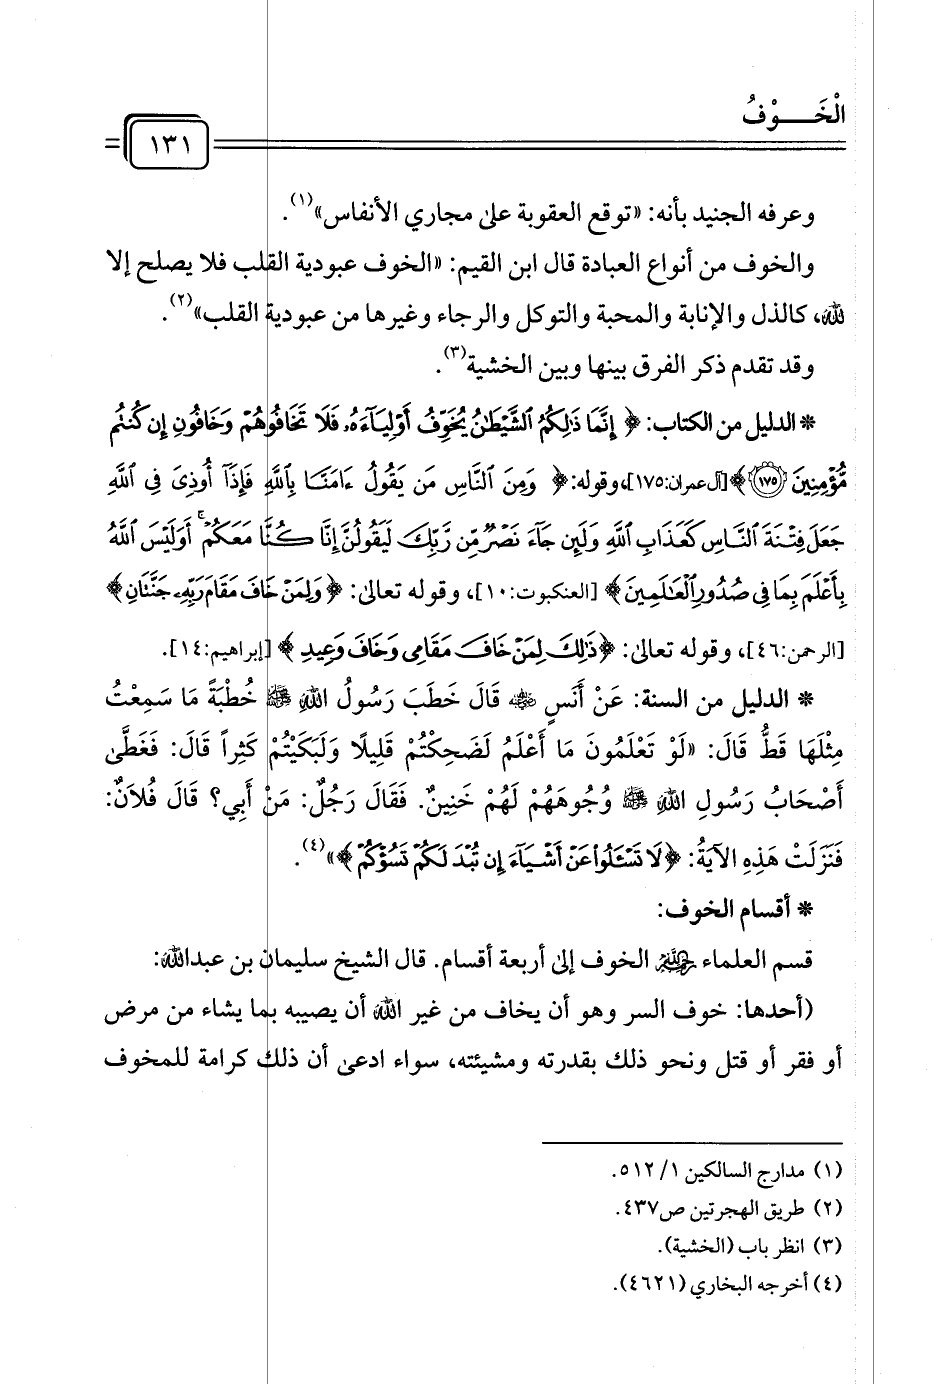 الْخَـــوْفُ
١٣١
وعرفه الجنيد بأنه: «توقع العقوبة علىٰ مجاري الأنفاس»(١).
والخوف من أنواع العبادة قال ابن القيم: «الخوف عبودية القلب فلا يصلح إلا
لله، كالذل والإنابة والمحبة والتوكل والرجاء وغيرها من عبودية القلب»(٢).
وقد تقدم ذكر الفرق بينها وبين الخشية(٣).
* الدليل من الكتاب: ﴿ إِنَّمَا ذَٰلِكُمُ ٱلشَّيْطَٰنُ يُخَوِّفُ أَوْلِيَآءَهُۥ فَلَا تَخَافُوهُمْ وَخَافُونِ إِن كُنتُم
مُّؤْمِنِينَ ١٧٥ ﴾ [آل عمران:١٧٥]، وقوله: ﴿ وَمِنَ ٱلنَّاسِ مَن يَقُولُ ءَامَنَّا بِٱللَّهِ فَإِذَآ أُوذِىَ فِى ٱللَّهِ
جَعَلَ فِتْنَةَ ٱلنَّاسِ كَعَذَابِ ٱللَّهِ وَلَئِن جَآءَ نَصْرٌ مِّن رَّبِّكَ لَيَقُولُنَّ إِنَّا كُنَّا مَعَكُمْ ۚ أَوَلَيْسَ ٱللَّهُ
بِأَعْلَمَ بِمَا فِى صُدُورِ ٱلْعَٰلَمِينَ ﴾ [العنكبوت:١٠]، وقوله تعالىٰ: ﴿ وَلِمَنْ خَافَ مَقَامَ رَبِّهِۦ جَنَّتَانِ ﴾
[الرحمن:٤٦]، وقوله تعالىٰ: ﴿ ذَٰلِكَ لِمَنْ خَافَ مَقَامِى وَخَافَ وَعِيدِ ﴾ [إبراهيم:١٤].
* الدليل من السنة: عَنْ أَنَسٍ رضي الله عنه قَالَ خَطَبَ رَسُولُ اللهِ ﷺ خُطْبَةً مَا سَمِعْتُ
مِثْلَهَا قَطُّ قَالَ: «لَوْ تَعْلَمُونَ مَا أَعْلَمُ لَضَحِكْتُمْ قَلِيلًا وَلَبَكَيْتُمْ كَثِراً قَالَ: فَغَطَّىٰ
أَصْحَابُ رَسُولِ اللهِ ﷺ وُجُوهَهُمْ لَهُمْ خَنِينٌ. فَقَالَ رَجُلٌ: مَنْ أَبِي؟ قَالَ فُلَانٌ:
فَنَزَلَتْ هَذِهِ الآيَةُ: ﴿ لَا تَسْـَٔلُوا۟ عَنْ أَشْيَآءَ إِن تُبْدَ لَكُمْ تَسُؤْكُمْ ﴾»(٤).
* أقسام الخوف:
قسم العلماء رحمهم الله الخوف إلىٰ أربعة أقسام. قال الشيخ سليمان بن عبدالله:
(أحدها: خوف السر وهو أن يخاف من غير الله أن يصيبه بما يشاء من مرض
أو فقر أو قتل ونحو ذلك بقدرته ومشيئته، سواء ادعىٰ أن ذلك كرامة للمخوف
(١) مدارج السالكين ١/ ٥١٢.
(٢) طريق الهجرتين ص٤٣٧.
(٣) انظر باب (الخشية).
(٤) أخرجه البخاري (٤٦٢١).